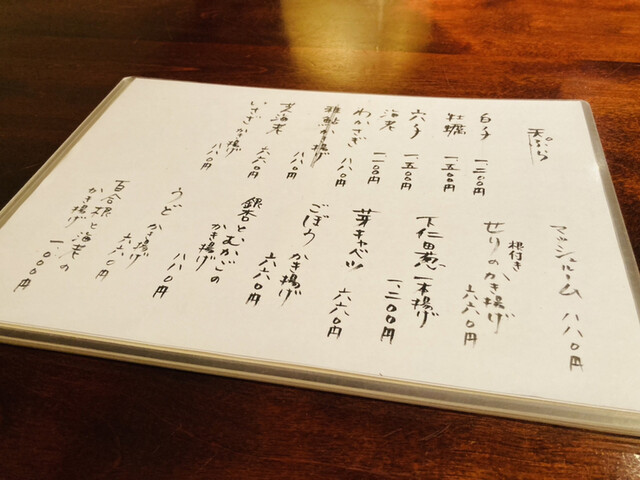 天ぷら
白子 一、三〇〇円
牡蠣 一、五〇〇円
穴子 一、五〇〇円
海老 一、一〇〇円
わかさぎ 八八〇円
稚鮎かき揚げ 八八〇円
芝海老 六六〇円
いさぎかき揚げ 八八〇円
マッシュルーム 八八〇円
根付き
せりのかき揚げ 六六〇円
下仁田葱一本揚げ 一、三〇〇円
芽キャベツ 六六〇円
ごぼうかき揚げ 六六〇円
銀杏とむかごの
かき揚げ 六六〇円
うどかき揚げ 八八〇円
百合根と海老の
かき揚げ 一、〇〇〇円